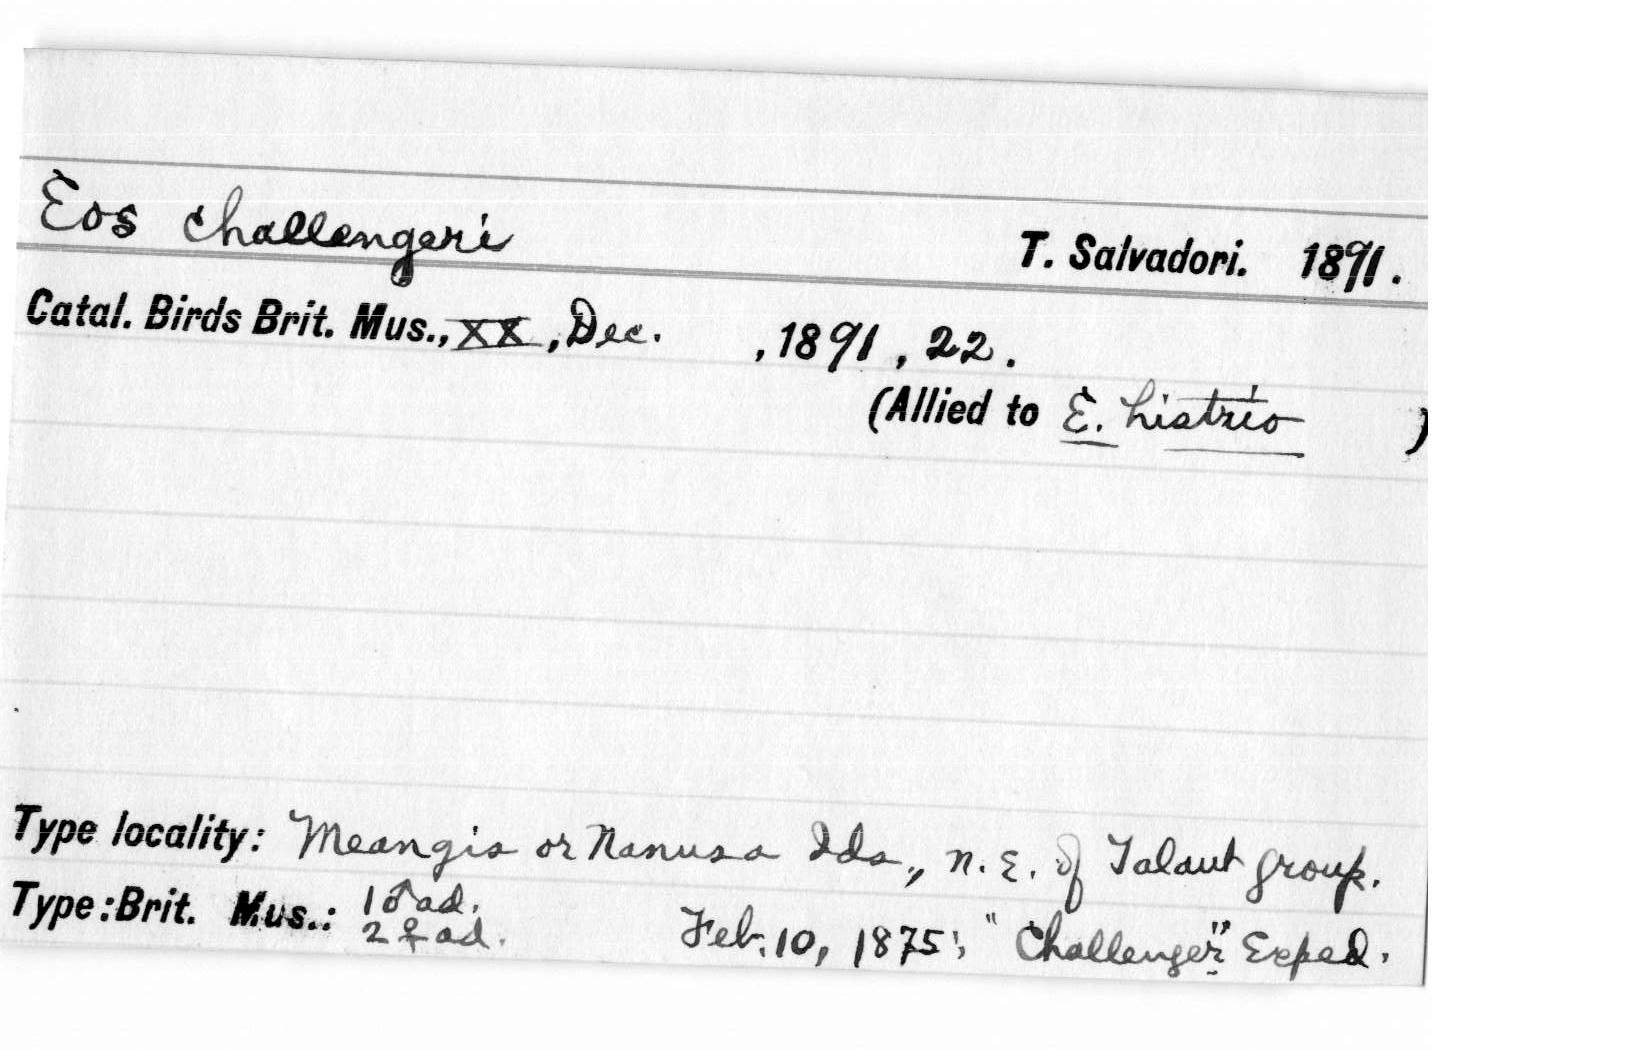 Eos challengeri
T. Salvadori. 1891.
Catal. Birds Brit. Mus., XX, Dec. , 1891, 22.
(Allied to E. histrio )
Type locality: Meangis or Nanusa Ids., N.E. of Talaut group.
Type: Brit. Mus.: 1 ♂ ad.
2 ♀ ad. Feb. 10, 1875; "Challenger" Exped.